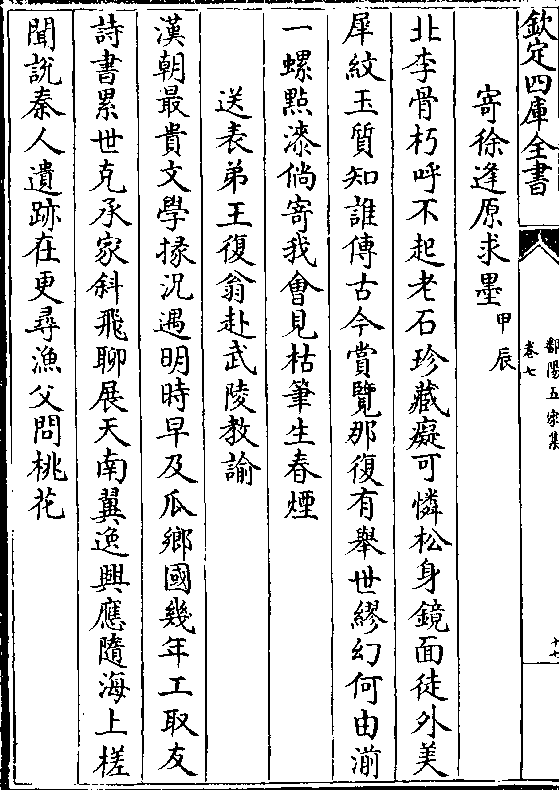 欽定四庫全書
鄱陽五家集
卷七
十七
寄徐逢原求墨甲辰
北李骨朽呼不起老石珍藏癡可憐松身鏡面徒外美
犀紋玉質知誰傳古今賞覽那復有舉世繆幻何由湔
一螺㸃漆倘寄我會見枯筆生春煙
送表弟王復翁赴武陵教諭
漢朝最貴文學掾況遇明時早及瓜鄉國幾年工取友
詩書累世克承家斜飛聊展天南翼逸興應隨海上槎
聞説秦人遺跡在更尋漁父問桃花